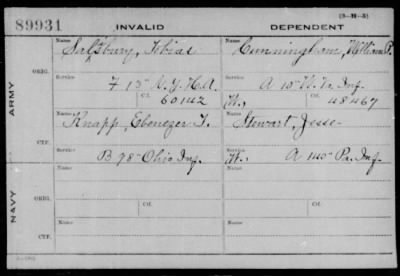 (3-H-5)
89931 INVALID DEPENDENT
Name Name
Salsbury, Tobias Cunningham, William P.
ORIG. Service Service
F 15" N.Y. H.A. A 10" W. Va. Inf.
Ctf. W., Ctf.
60142 48467
ARMY
Name Name
Knapp, Ebenezer T. Stewart, Jesse
CTF. Service Service
B 98" Ohio Inf. W. A 140" Pa. Inf.
Name Name
ORIG.
Service Service
Ctf. Ctf.
NAVY
Name Name
CTF.
Service Service